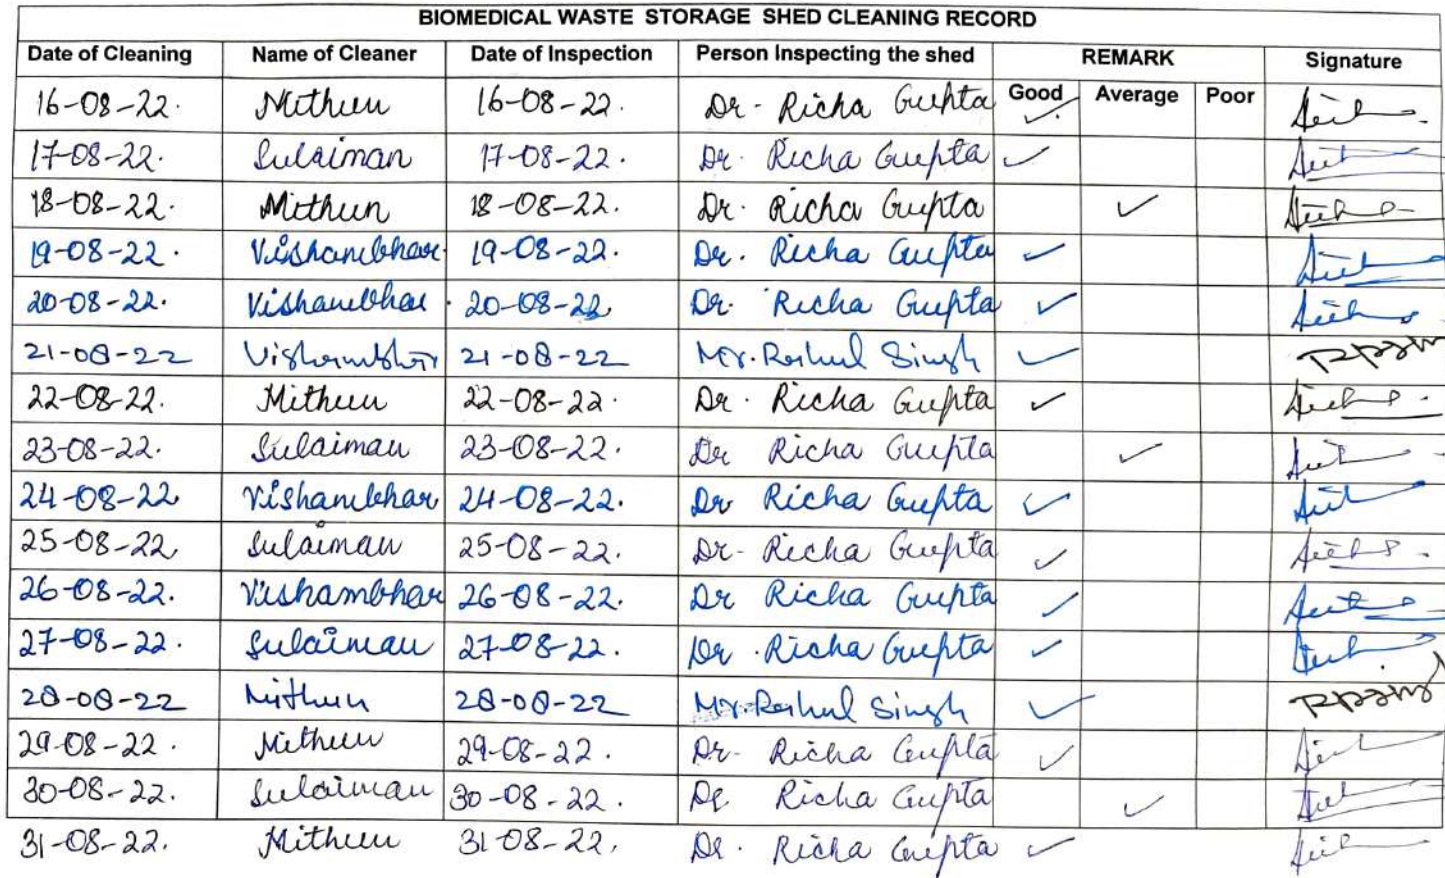 BIOMEDICAL WASTE STORAGE SHED CLEANING RECORD
Date of Cleaning Name of Cleaner Date of Inspection Person Inspecting the shed REMARK Signature
Good Average Poor
16-08-22. Mithun 16-08-22. Dr. Richa Gupta ✓
17-08-22. Sulaiman 17-08-22. Dr. Richa Gupta ✓
18-08-22. Mithun 18-08-22. Dr. Richa Gupta ✓
19-08-22. Vishambhar. 19-08-22. Dr. Richa Gupta ✓
20-08-22. Vishambhar. 20-08-22. Dr. Richa Gupta ✓
21-08-22 Vishambhar 21-08-22 Mr. Rahul Singh ✓
22-08-22. Mithun 22-08-22. Dr. Richa Gupta ✓
23-08-22. Sulaiman 23-08-22. Dr Richa Gupta ✓
24-08-22 Vishambhar 24-08-22. Dr Richa Gupta ✓
25-08-22 Sulaiman 25-08-22. Dr. Richa Gupta ✓
26-08-22. Vishambhar 26-08-22. Dr Richa Gupta ✓
27-08-22. Sulaiman 27-08-22. Dr. Richa Gupta ✓
28-08-22 Mithun 28-08-22 Mr. Rahul Singh ✓
29-08-22. Mithun 29-08-22. Dr. Richa Gupta ✓
30-08-22. Sulaiman 30-08-22. Dr. Richa Gupta ✓
31-08-22. Mithun 31-08-22. Dr. Richa Gupta ✓